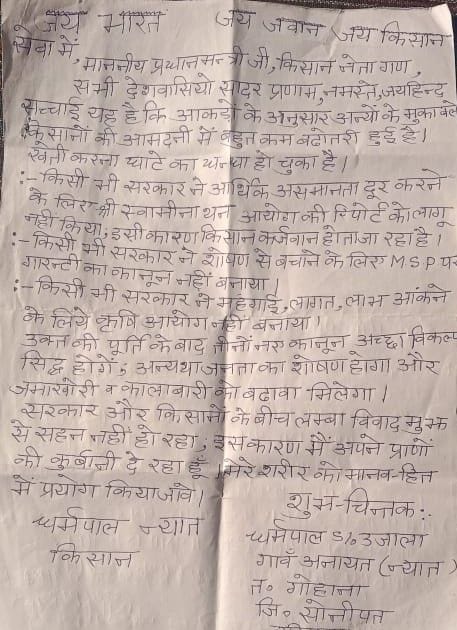 जय भारत जय जवान जय किसान
सेवा में,
माननीय प्रधानमन्त्री जी, किसान नेता गण,
सभी देशवासियो सादर प्रणाम, नमस्ते, जयहिन्द
सच्चाई यह है कि आकड़ो के अनुसार अन्यों के मुकाबले
किसानों की आमदनी में बहुत कम बढोतरी हुई है।
खेती करना घाटे का धन्धा हो चुका है।
:- किसी भी सरकार ने आर्थिक असमानता दूर करने
के लिए श्री स्वामीनाथन आयोग की रिपोर्ट को लागू
नहीं किया; इसी कारण किसान कर्जवान होता जा रहा है।
:- किसी भी सरकार ने शोषण से बचाने के लिए MSP पर
गारन्टी का कानून नहीं बनाया।
:- किसी भी सरकार ने महगाई, लागत, लाभ आंकने
के लिये कृषि आयोग नहीं बनाया।
उक्त की पूर्ति के बाद तीनों नए कानून अच्छा विकल्प
सिद्ध होगें; अन्यथा जनता का शोषण होगा और
जमाखोरी व कालाबारी को बढावा मिलेगा।
सरकार और किसानों के बीच लम्बा विवाद मुझ
से सहन नहीं हो रहा; इस कारण मैं अपने प्राणों
की कुर्बानी दे रहा हूँ। मेरे शरीर को मानव-हित
में प्रयोग किया जावे।
शुभ-चिन्तक :.
धर्मपाल न्यात
किसान
धर्मपाल S/o उजाला
गावँ अनायत (न्यात)
त॰ गोहाना
जि॰ सोनीपत